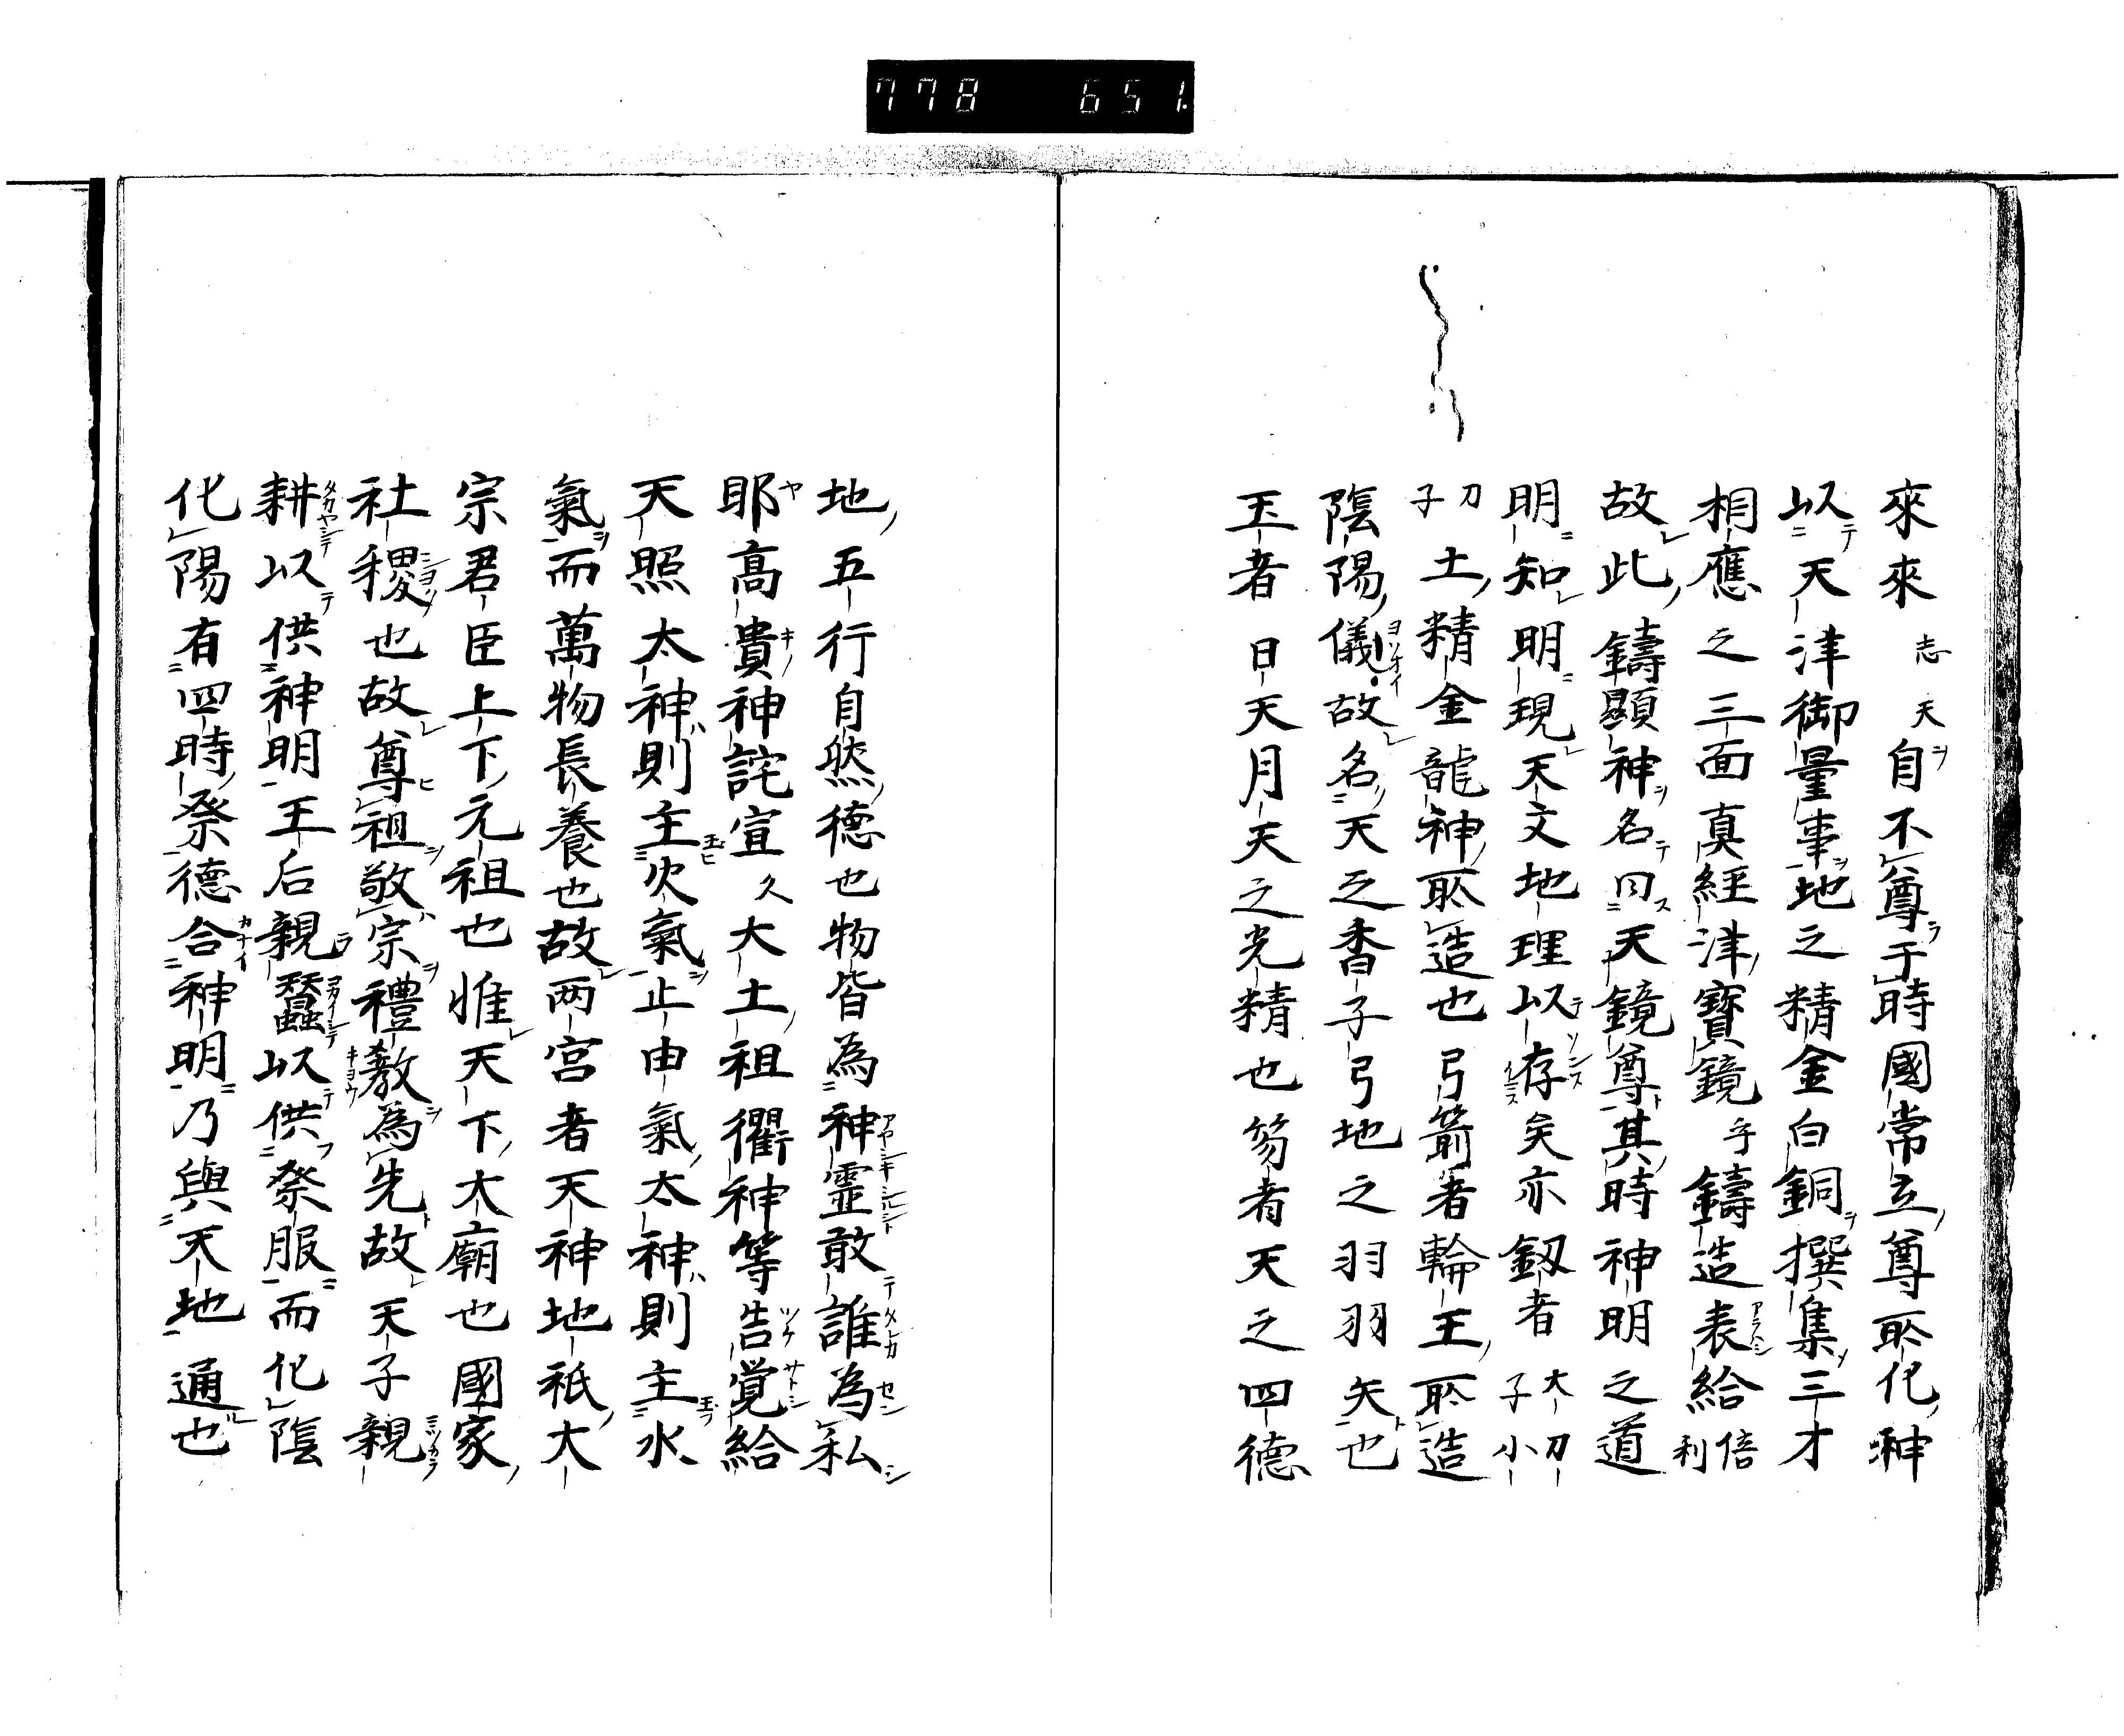 778 651.
來來志天自不尊于時國常立尊所化神
以天津御量事地之精金白銅撰集三才
相應之三面真経津寶鏡乎鑄造表給倍利
故此鑄顯神名曰天鏡尊其時神明之道
明知明現天文地理以存矣亦釼者大刀子小
刀子土精金龍神所造也弓箭者輪王所造
陰陽儀故名天之香子弓地之羽羽矢也
玉者日天月天之光精也笏者天之四德
地五行自然德也物皆為神靈敢誰為私
耶高貴神託宣久大土祖衢神等告覚給
天照太神則主火氣止由氣太神則主水
氣而萬物長養也故两宮者天神地祇大
宗君臣上下元祖也惟天下大廟也國家
社稷也故尊祖敬宗禮教為先故天子親
耕以供神明王后親蠶以供祭服而化陰
化陽有四時祭德合神明乃與天地通也